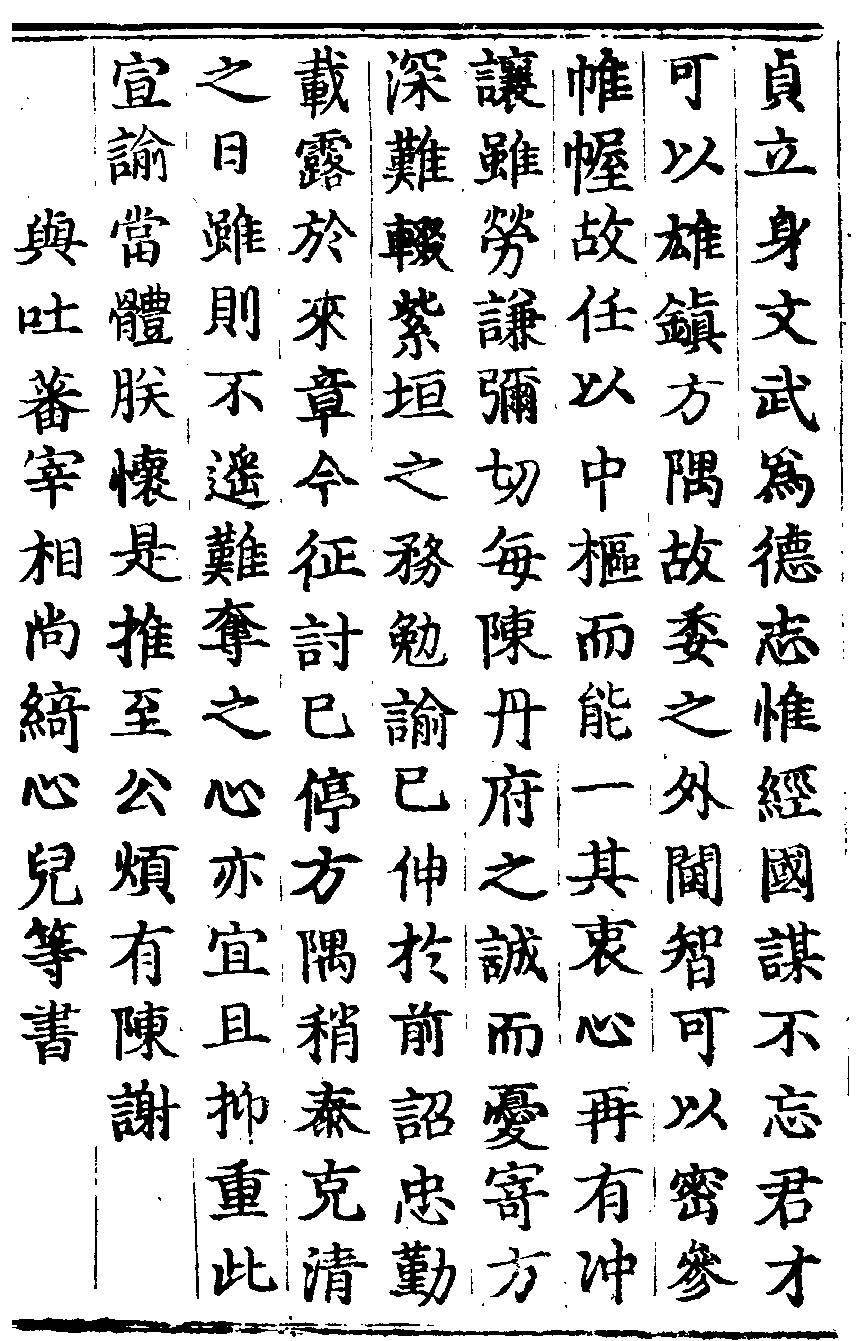 貞立身文武爲德志惟經國謀不忘君才
可以雄鎭方隅故委之外閫智可以密參
帷幄故任以中樞而能一其衷心再有冲
讓雖勞謙彌切每陳丹府之誠而憂寄方
深難輟紫垣之務勉諭已伸於前詔忠勤
載露於來章今征討已停方隅稍泰克清
之日雖則不遥難奪之心亦宜且抑重此
宣諭當體朕懷是推至公煩有陳謝
與吐蕃宰相尚綺心兒等書